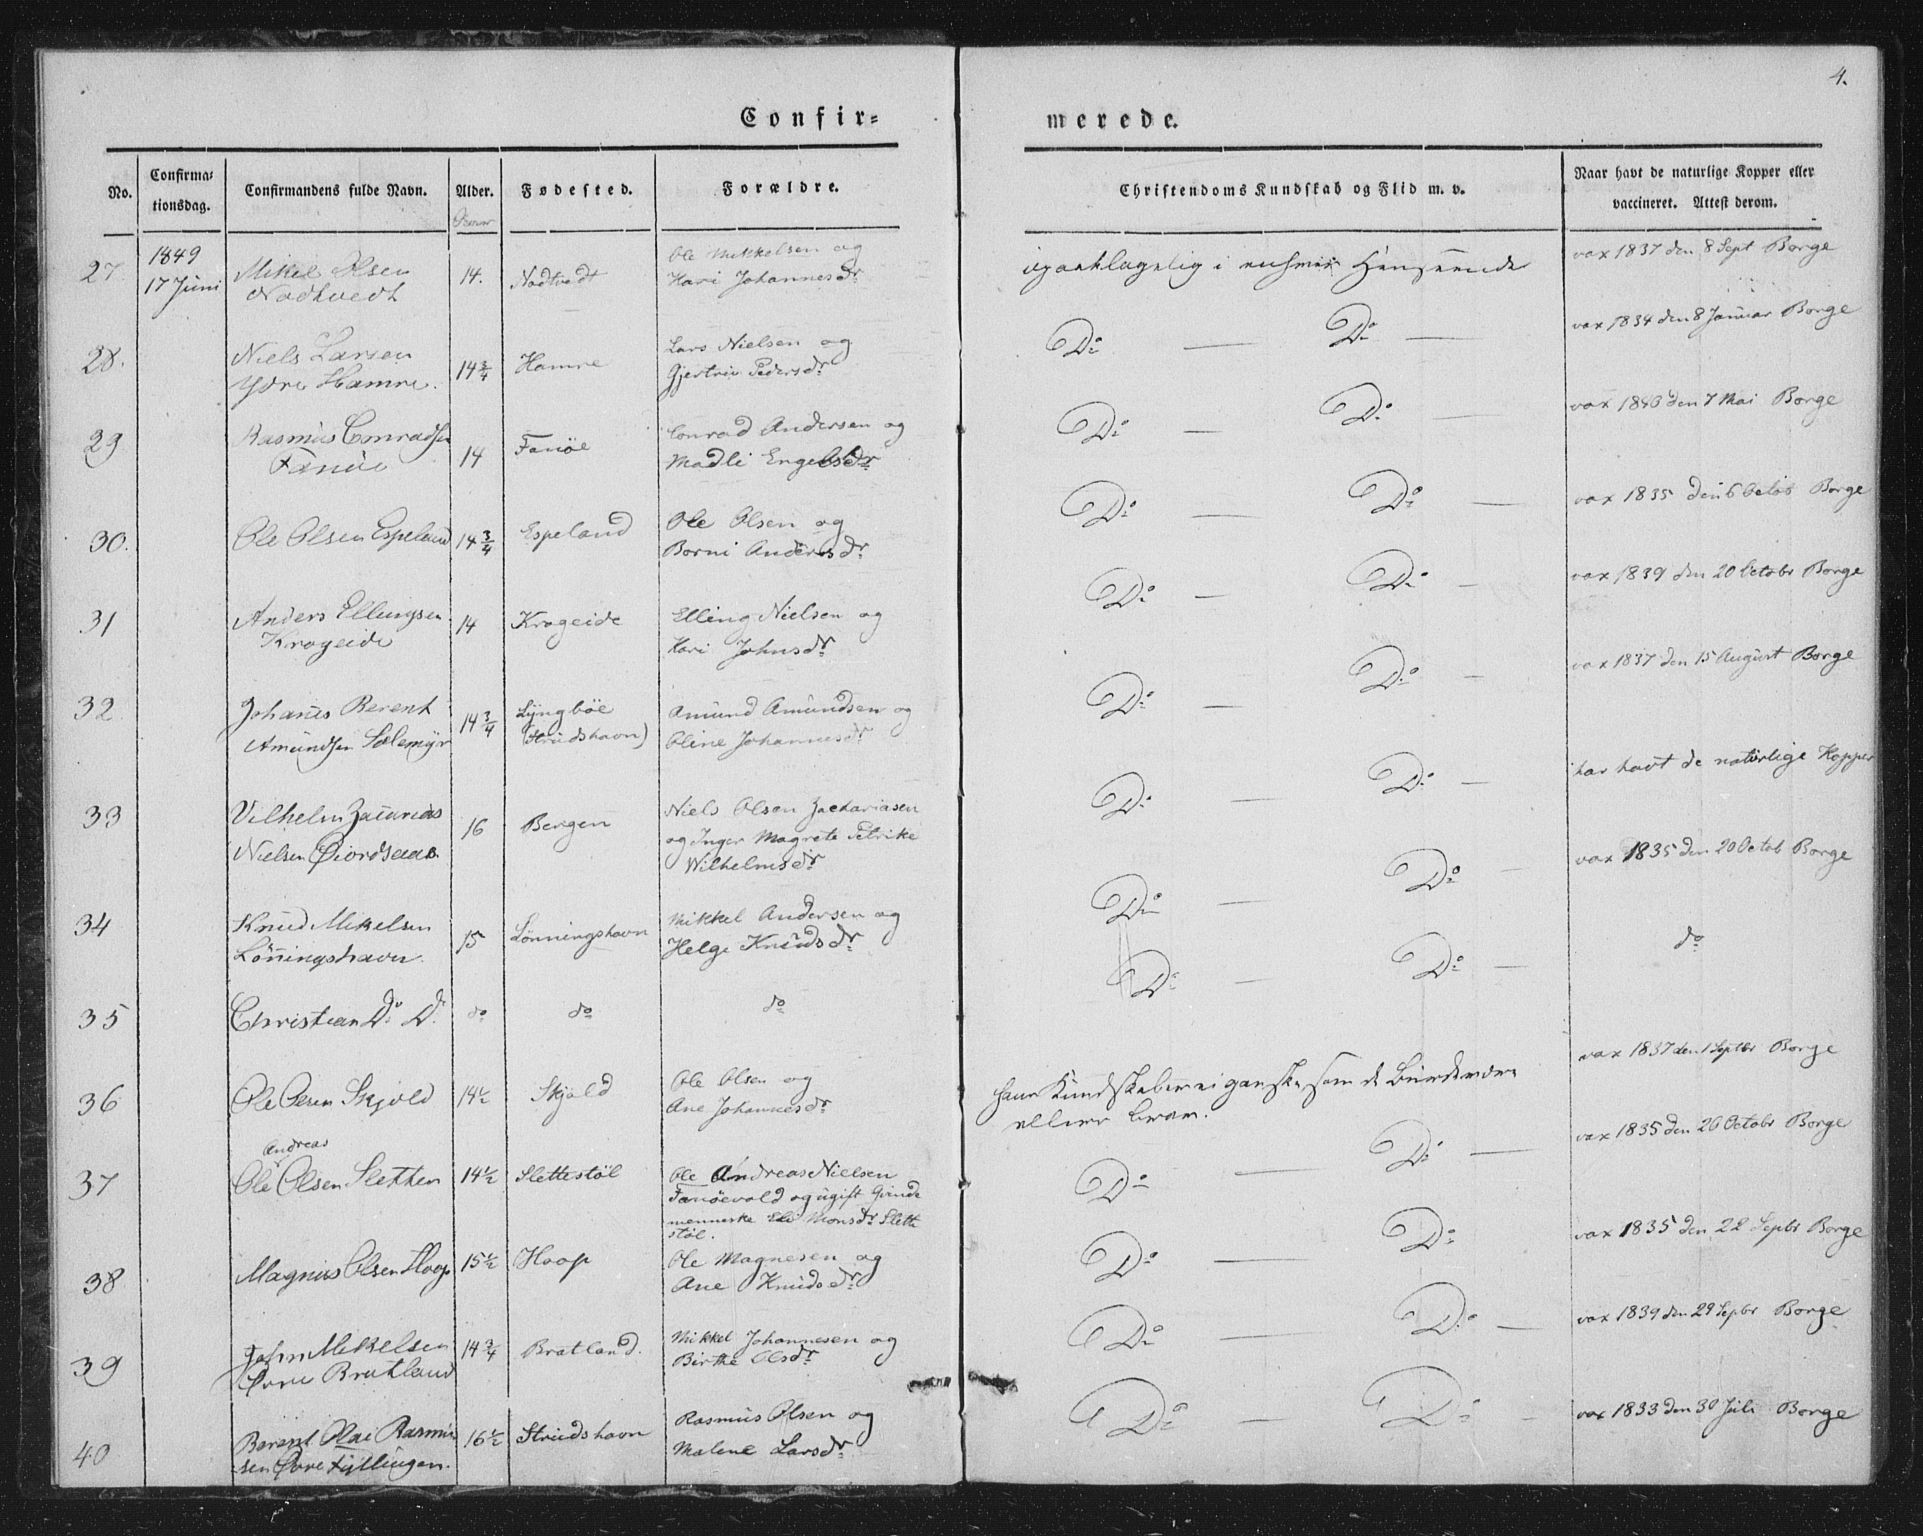 4.
Confir- merede.
No. Confirma- tionsdag. Confirmandens fulde Navn. Alder. Fødested. Forældre. Christendoms Kundskab og Flid m. v. Naar havt de naturlige Kopper eller vaccineret. Attest derom.
27. 1849 17 Juni Mikel Olsen Nodtvedt 14. Nodtvedt Ole Mikkelsen og Hari Johannesdr upaaklagelig i enhver Henseende vax 1837 den 8 Sept Borge
28. Niels Larsen Ydre Hamre. 14 3/4 Hamre Lars Nielsen og Gjertrie Pedersdr Do — Do — vax 1834 den 8 Januar Borge
29 Rasmus Conradsen Fanöe 14 Fanöe Conrad Andersen og Madli Engelsdr Do — Do — vax 1840 den 7 Mai Borge
30. Ole Olsen Espeland 14 3/4 Espeland Ole Olsen og Borni Andersdr Do — Do — vax 1835 den 6 Octob Borge
31 Anders Ellingsen Krogeide 14 Krogeide Elling Nielsen og Kari Johnsdr Do — Do — vax 1839 den 20 Octobr Borge
32. Johanes Berent Amundsen Sælemyr 14 3/4 Lyngböe (Strudshavn) Amund Amundsen og Oline Johannesdr Do — Do — vax 1837 den 15 August Borge
33 Vilhelm Zacarias Nielsen 16 Bergen Niels Olsen Zachariasen og Inger Magrete Petrike Wilhelmsdr Do — Do — har havt de naturlige Kopper
34 Knud Mikelsen Lönningshavn. 15 Lönningshavn Mikkel Andersen og Helge Knudsdr Do — Do — vax 1835 den 20 Octob Borge
35 Christian Do Do do do do Do — Do — do
36 Ole Olsen Skjold 14 1/2 Skjold Ole Olsen og Ane Johannesdr hans Kundskaber ei ganske som de burde være ellers brav. vax 1837 den 1 Septbr Borge
37 Ole Andreas Olsen Sletten 14 1/2 Slettestöl Ole Andreas Nielsen Fanöevald og ugift Qvinde menneske Eli Monsdr Slette stöl. Do — Do — vax 1835 den 20 Octobr Borge
38 Magnus Olsen Hoop 15 1/2 Hoop Ole Magnesen og Ane Knudsdr Do — Do vax 1835 den 22 Septbr Borge
39 John Mikelsen Övre Bratland 14 3/4 Bratland. Mikkel Johannesen og Birthe Olsdr Do — Do — vax 1839 den 29 Septbr Borge
40 Berent Olai Rasmus sen Övre Fyllingen. 16 1/2 Strudshavn Rasmus Olsen og Malene Larsdr Do — Do — vax 1833 den 30 Juli Borge